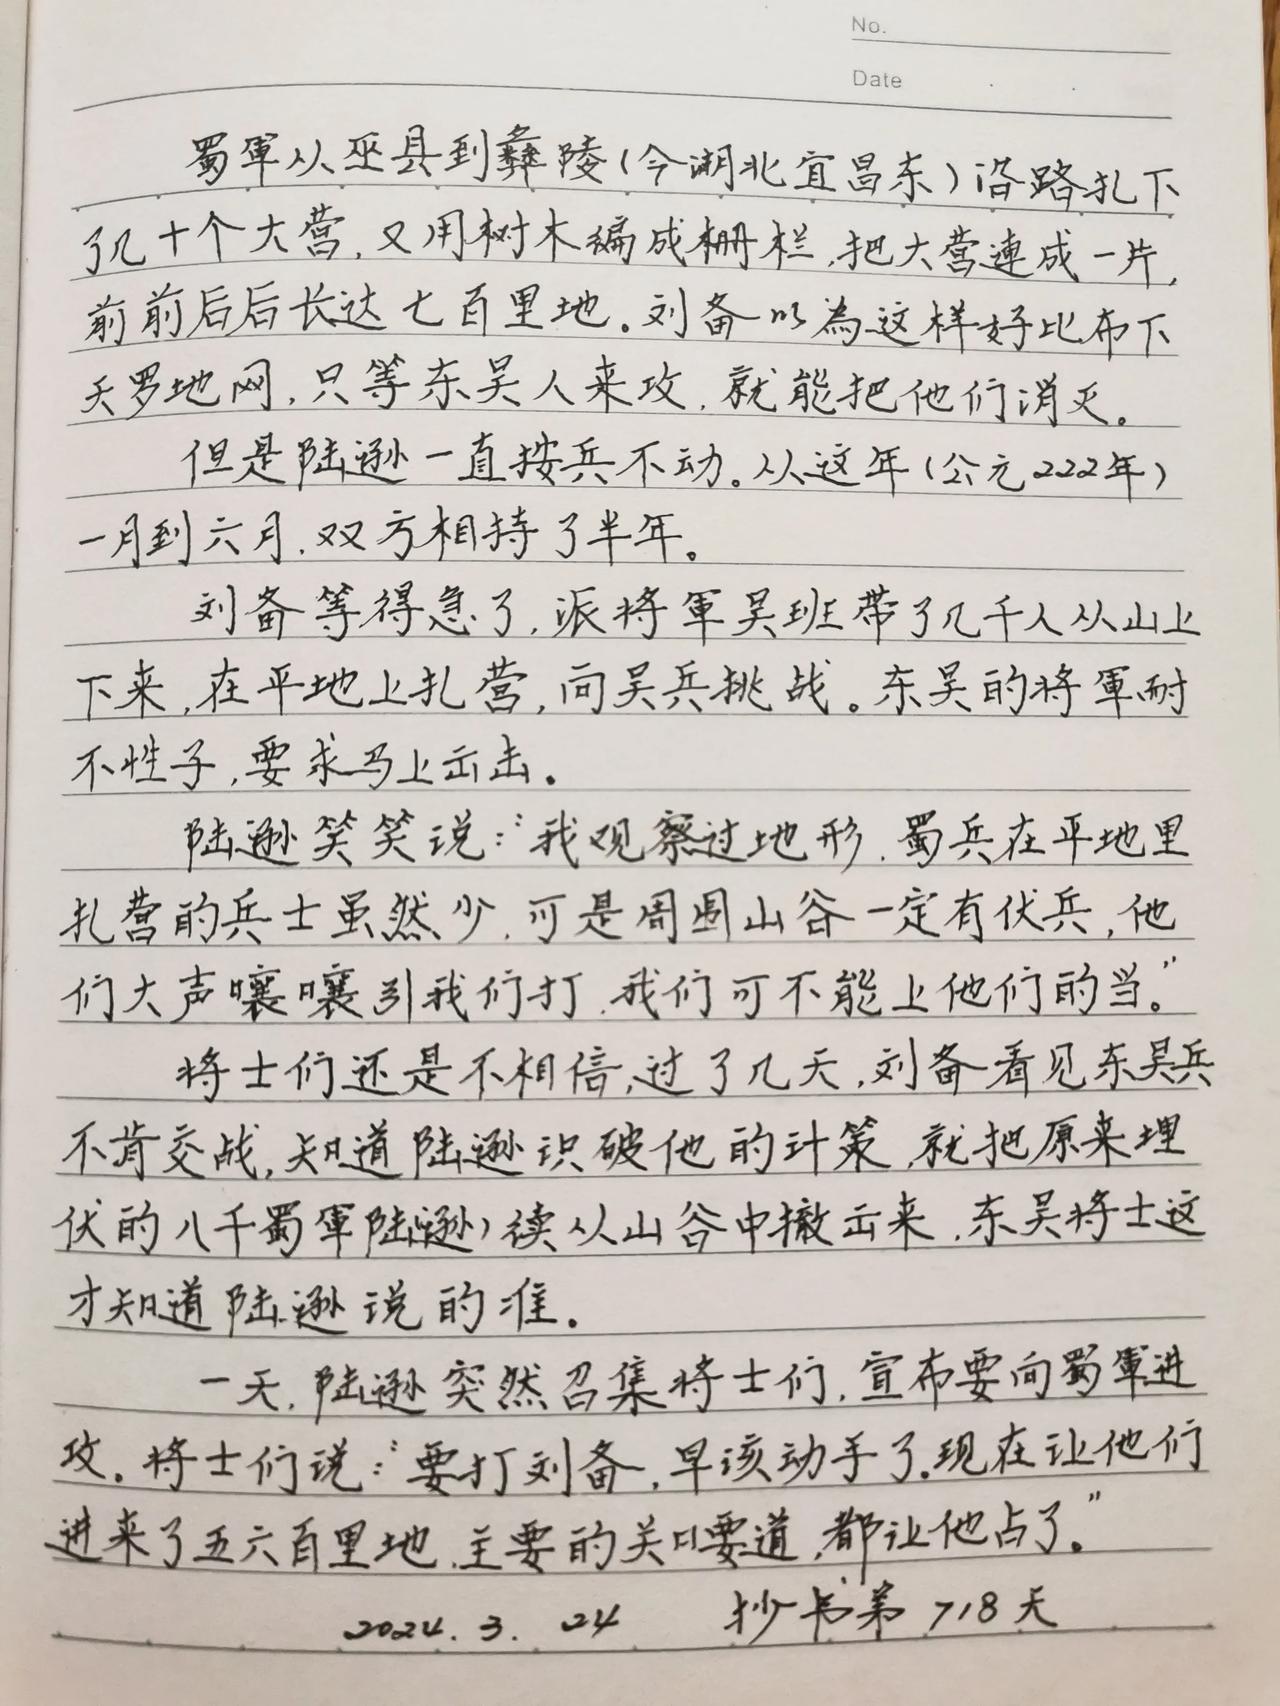 No.
Date
蜀軍从巫县到彝陵(今湖北宜昌东)沿路扎下
了几十个大营,又用树木编成栅栏,把大营連成一片,
前前后后长达七百里地。刘备以為这样好比布下
天罗地网,只等东吴人来攻,就能把他们消灭。
但是陆逊一直按兵不动。从这年(公元222年)
一月到六月,双方相持了半年。
刘备等得急了,派将軍吴班带了几千人从山上
下来,在平地上扎营,向吴兵挑战。东吴的将軍耐
不性子,要求马上出击。
陆逊笑笑说:“我观察过地形,蜀兵在平地里
扎营的兵士虽然少,可是周围山谷一定有伏兵,他
们大声嚷嚷引我们打,我们可不能上他们的当。”
将士们还是不相信,过了几天,刘备看见东吴兵
不肯交战,知道陆逊识破他的计策,就把原来埋
伏的八千蜀軍陆逊)续从山谷中撤出来,东吴将士这
才知道陆逊说的准。
一天,陆逊突然召集将士们,宣布要向蜀軍进
攻。将士们说:“要打刘备,早该动手了。现在让他们
进来了五六百里地,主要的关口要道,都让他占了。”
2024.3.24 抄书第718天